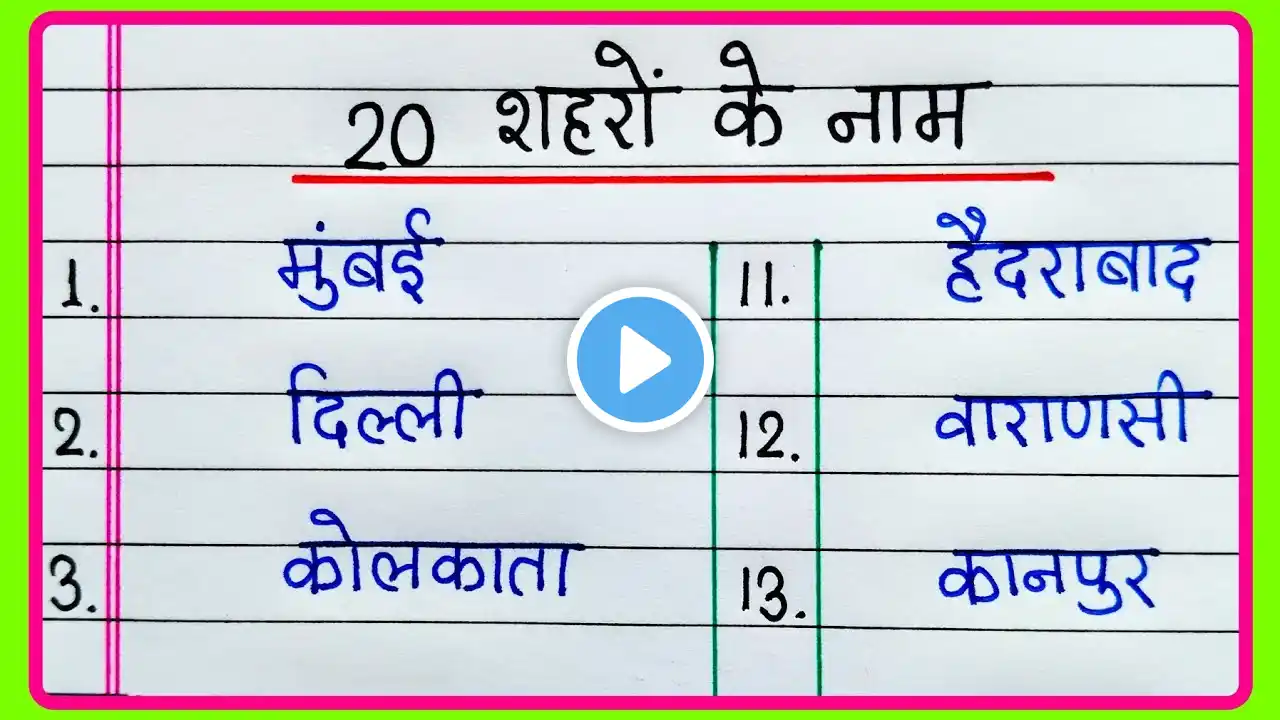 20 शहरों के नाम
1. मुंबई
2. दिल्ली
3. कोलकाता
11. हैदराबाद
12. वाराणसी
13. कानपुर